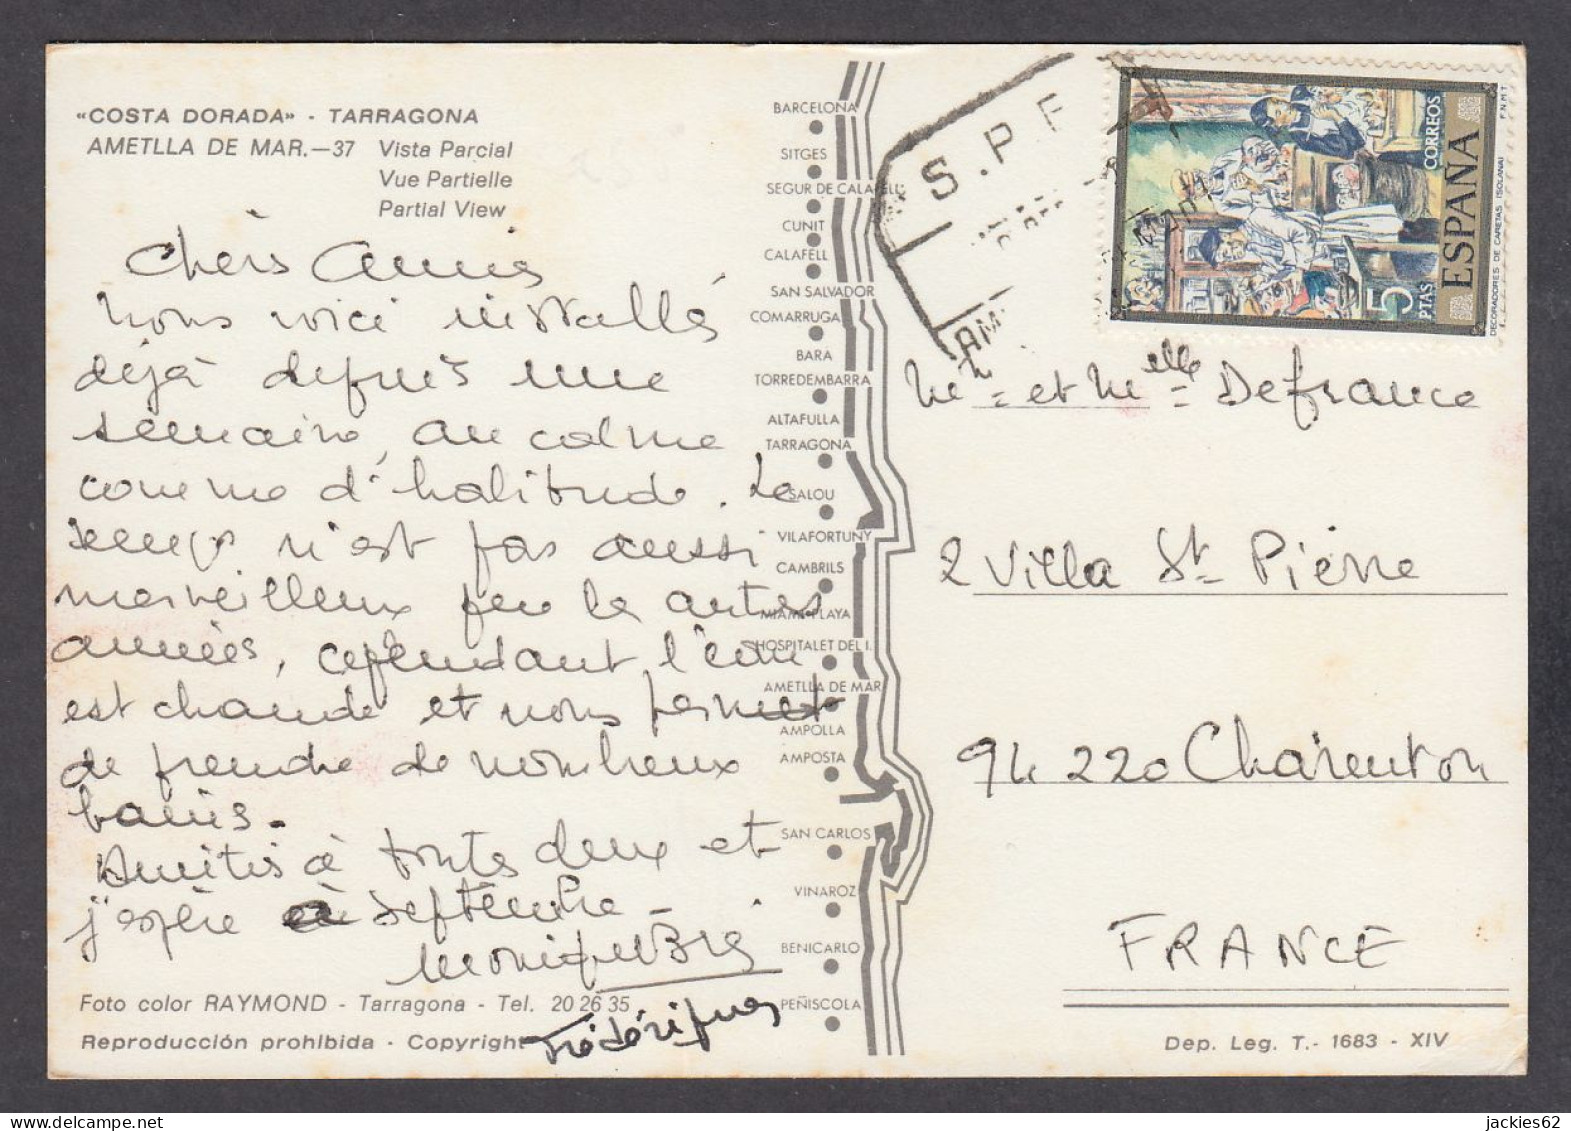 «COSTA DORADA» - TARRAGONA
AMETLLA DE MAR.—37 Vista Parcial
Vue Partielle
Partial View
Chers amis
Nous voici installés
déjà depuis une
semaine, au calme
comme d'habitude. Le
temps n'est pas aussi
merveilleux que les autres
années, cependant l'eau
est chaude et nous permet
de prendre de nombreux
bains.
Amitiés à toutes deux et
j'espère à septembre -
Monique
Frédérique
Foto color RAYMOND - Tarragona - Tel. 20 26 35
Reproducción prohibida - Copyright
BARCELONA
SITGES
SEGUR DE CALAFELL
CUNIT
CALAFELL
SAN SALVADOR
COMARRUGA
BARA
TORREDEMBARRA
ALTAFULLA
TARRAGONA
SALOU
VILAFORTUNY
CAMBRILS
MIAMI-PLAYA
HOSPITALET DEL I.
AMETLLA DE MAR
AMPOLLA
AMPOSTA
SAN CARLOS
VINAROZ
BENICARLO
PEÑISCOLA
S.P.F
AM
CORREOS
ESPAÑA
5 PTAS
DECORADORES DE CARETAS (SOLANA)
F.N.M.T.
et Melle Defrance
2 Villa St Pierre
94 220 Charenton
FRANCE
Dep. Leg. T.- 1683 - XIV
jackies62